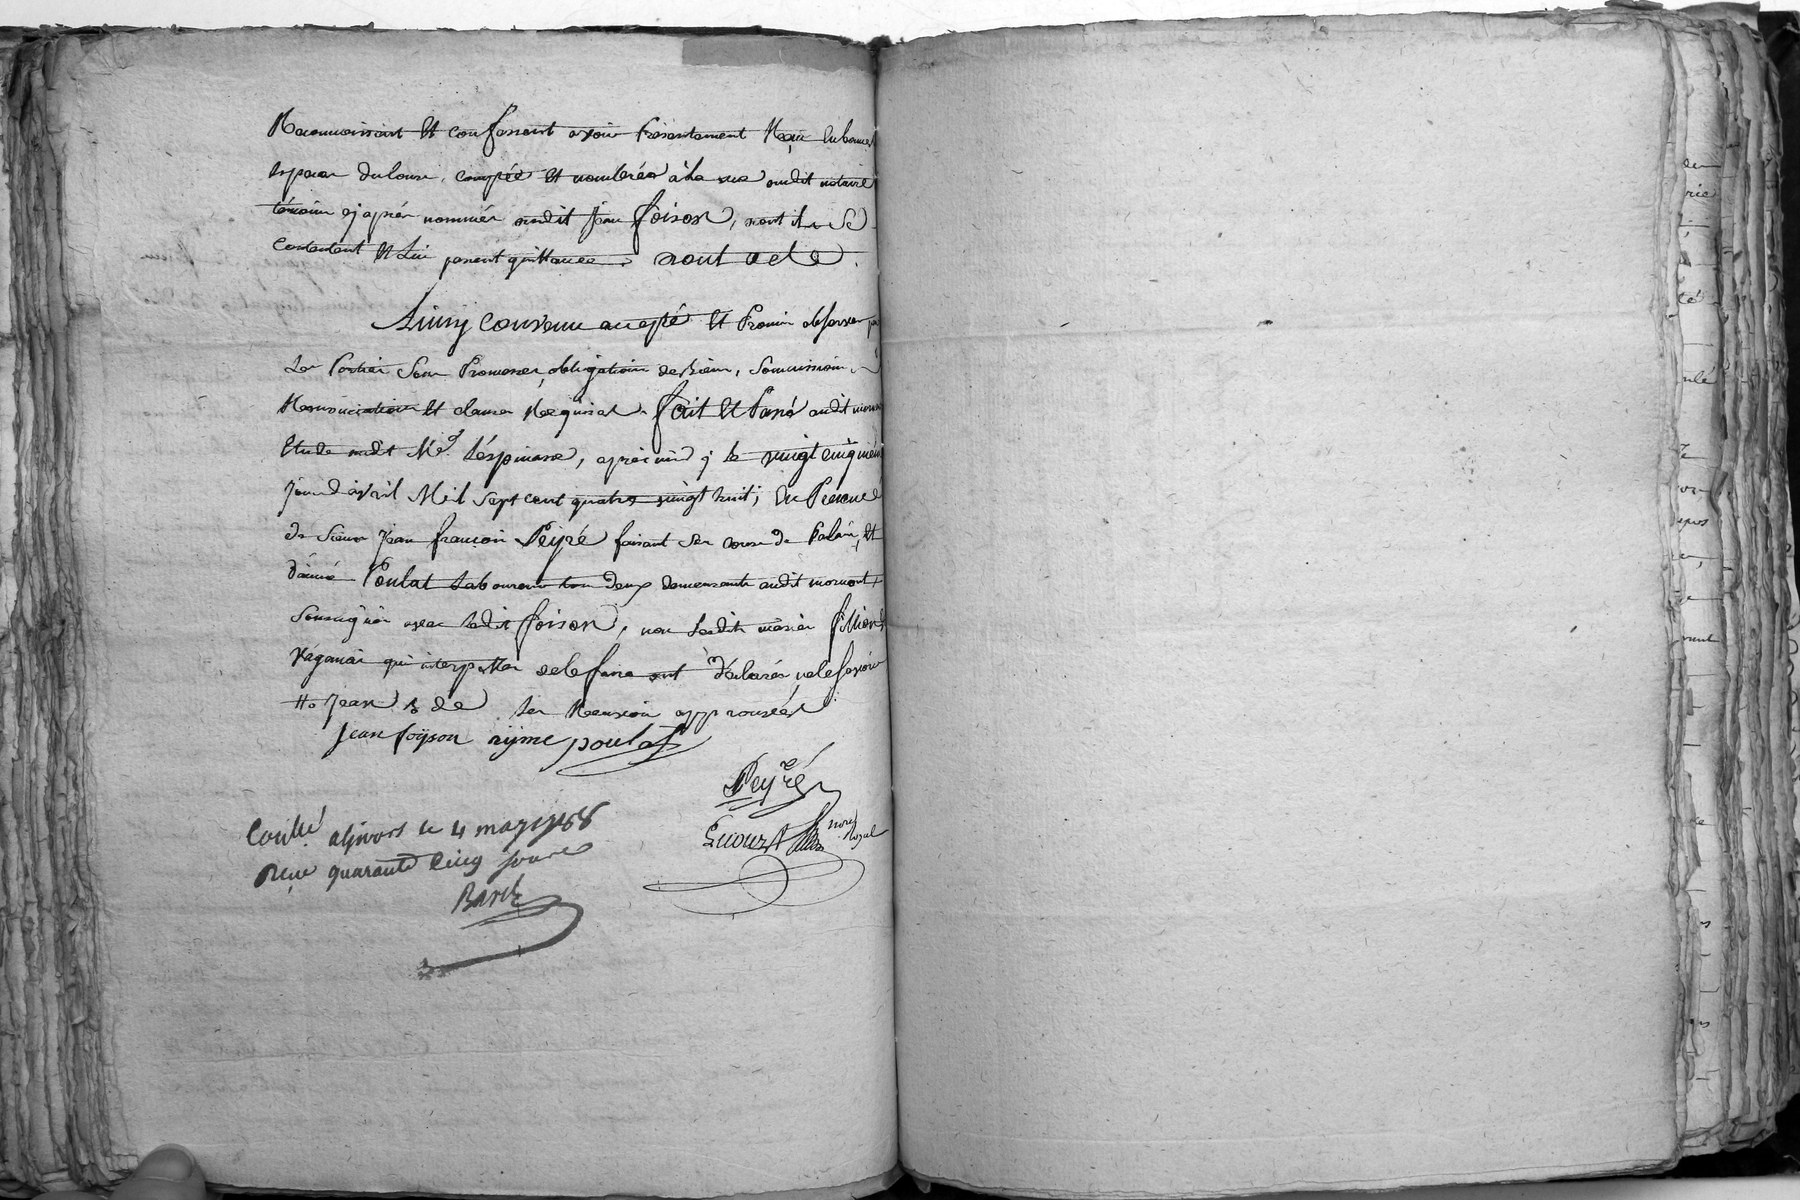 Reconnoissent et confessent avoir présentement Reçu en bonnes
especes du cours, comptée et nombrée à la vue dudit notaire
témoins cj après nommés dudit jean foison, dont ils Se
contentent et Lui passent quittance. dont acte.
Ainsy convenu accepté et Promis observer par
Les Parties Sous Promesses, obligation de biens, Soumissions,
Renonciation et clauses Requises. fait et Passé audit mornant
Etude dudit Me. Léspinasse, après midj le vingt cinquieme
Jour d'avril Mil sept cent quatre vingt huit; En Presence
de Sieur Jean françois Peÿré faisant Ses cours de Palais, et
d'aimé Poulat Laboureur tous deux demeurants audit mornant,
Soussignés avec ledit foison, non lesdits mariés fillion
qui interpellés de le faire ont déclarés ne le sçavoir
Jean & de Les Renvois approuvés
jean foÿson aÿme poulat
Peyré
nore Royal
Conllé a givors le 4 may 1788
Reçu quarante cinq sous